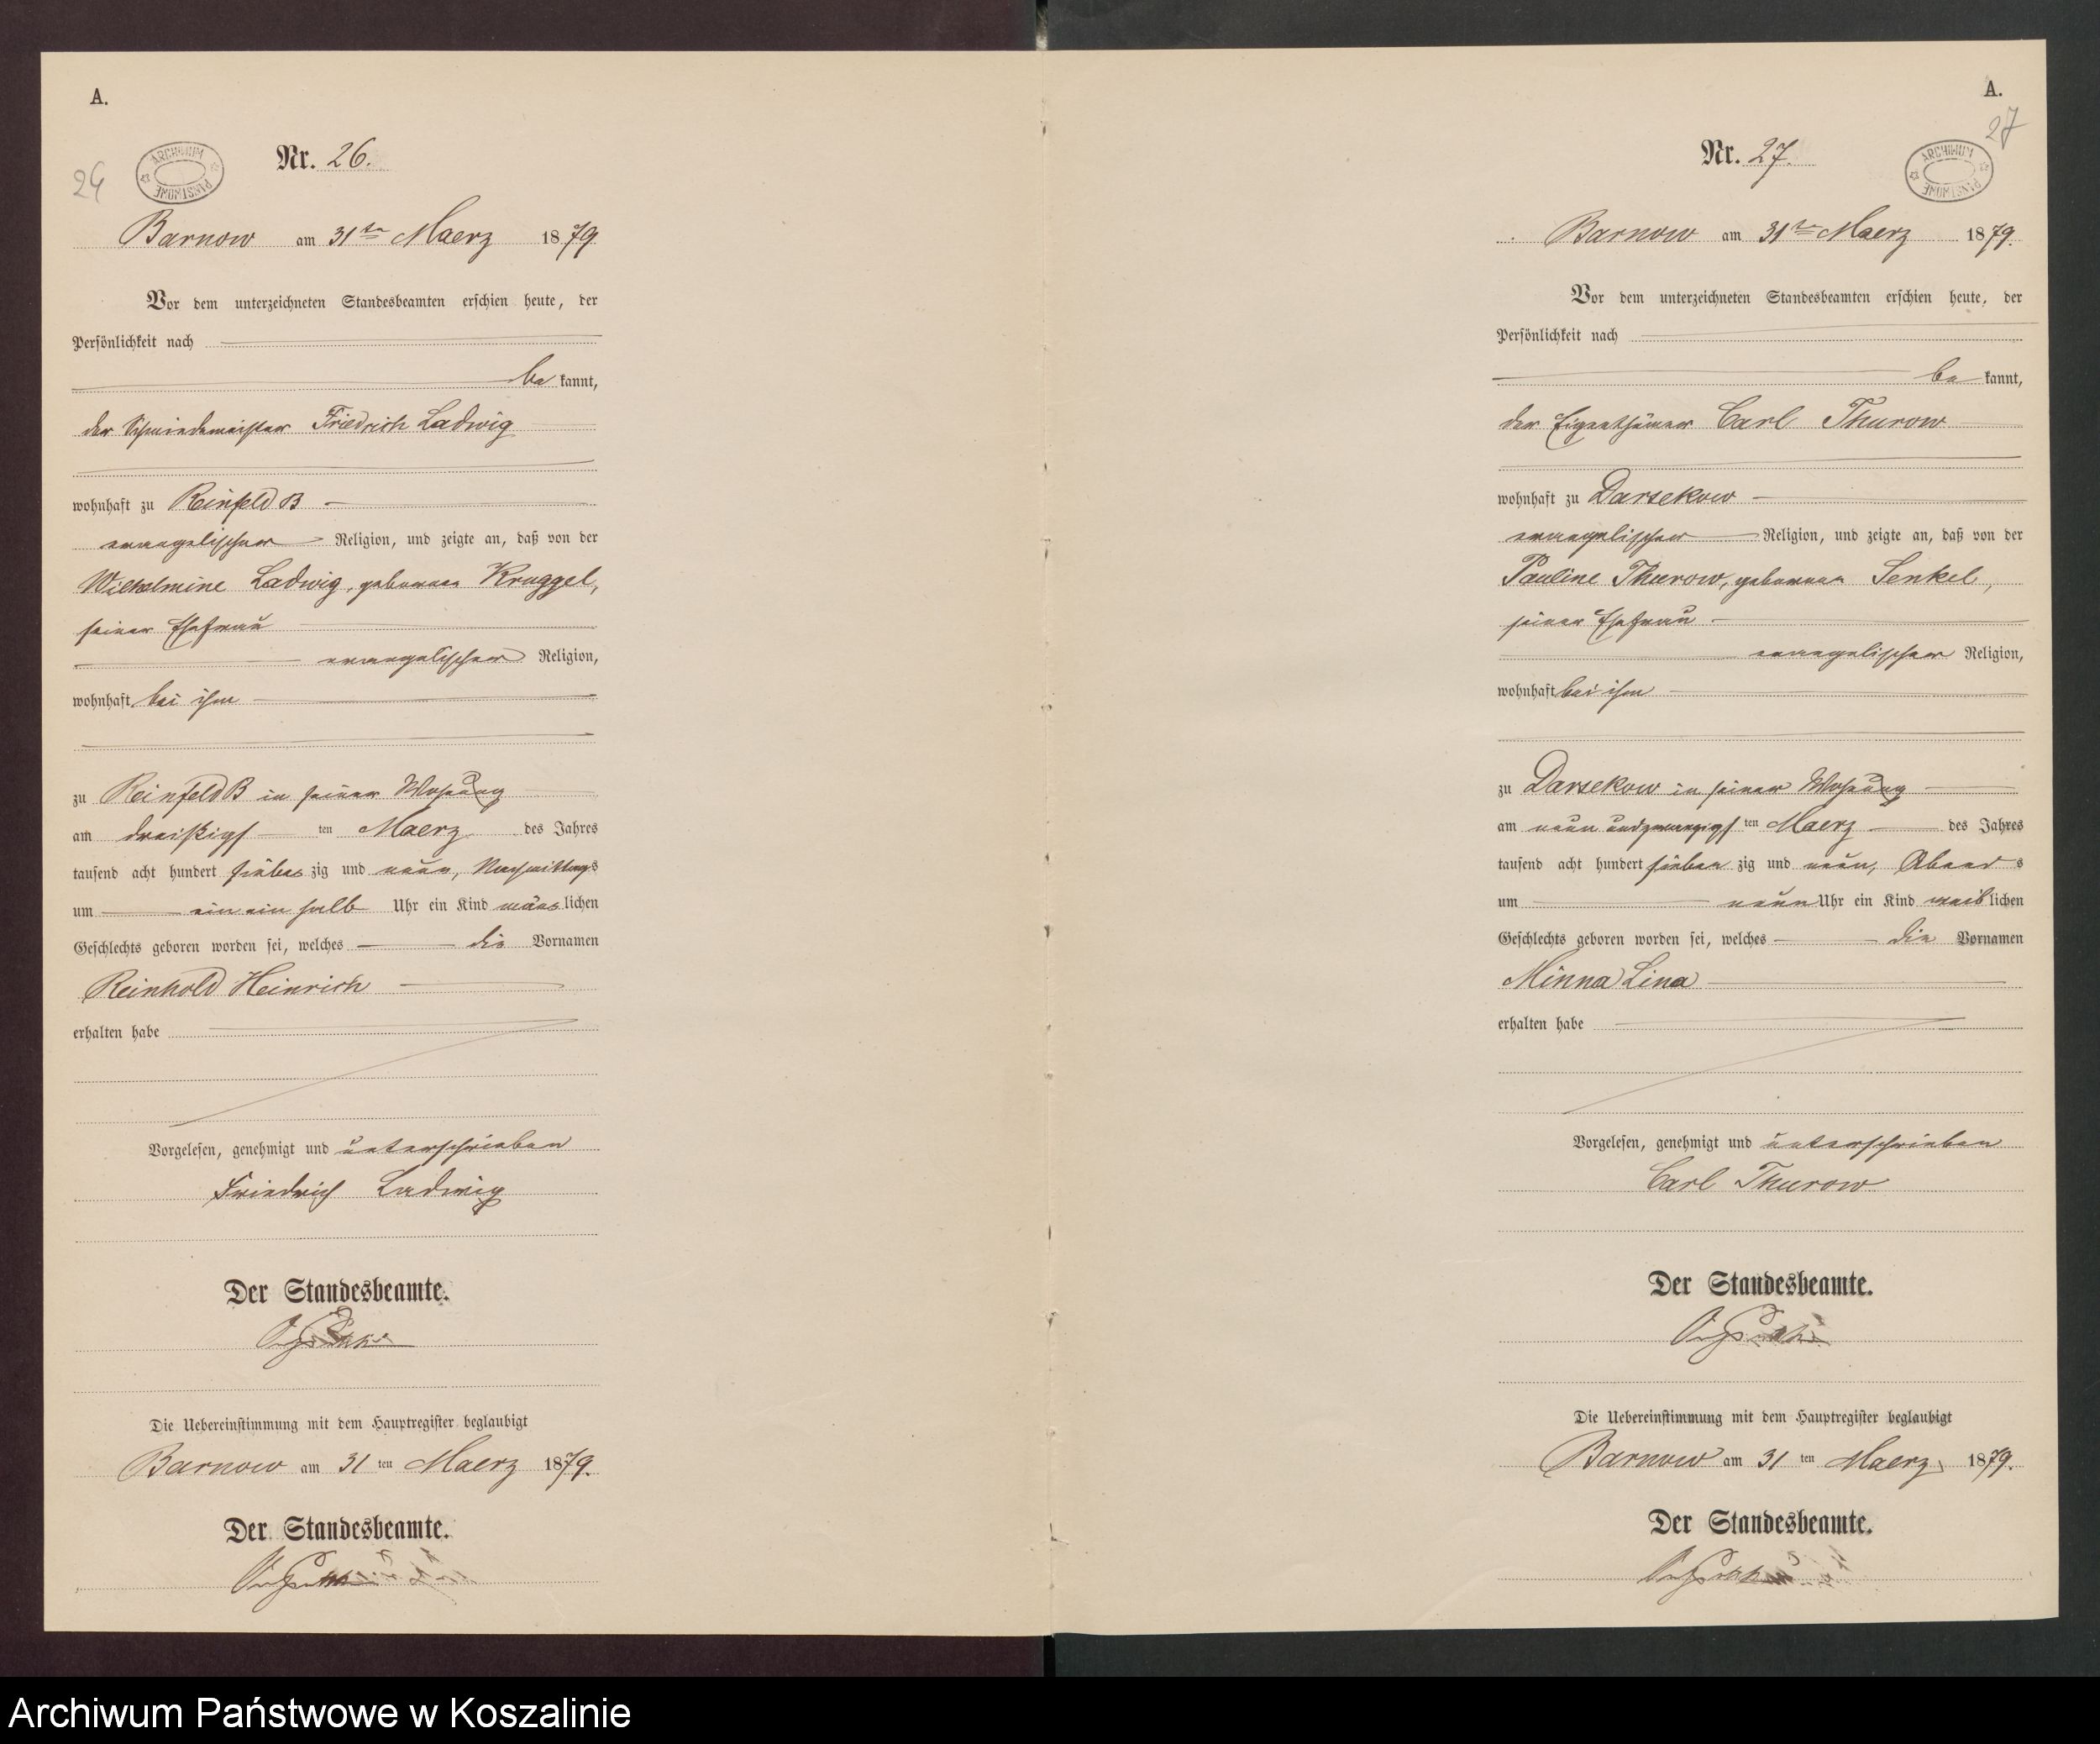 A.
26
ARCHIWUM PAŃSTWOWE
Nr. 26.
Barnow am 31ten Maerz 1879.
Vor dem unterzeichneten Standesbeamten erschien heute, der
Persönlichkeit nach
bekannt,
der Schmiedemeister Friedrich Ladwig
wohnhaft zu Reinfeld B
evangelischer Religion, und zeigte an, daß von der
Wilhelmine Ladwig, geborenen Kruggel,
seiner Ehefrau
evangelischer Religion,
wohnhaft bei ihm
zu Reinfeld B in seiner Wohnung
am dreißigsten Maerz des Jahres
tausend acht hundert siebenzig und neun, Nachmittags
um ein ein halb Uhr ein Kind männlichen
Geschlechts geboren worden sei, welches die Vornamen
Reinhold Heinrich
erhalten habe
Vorgelesen, genehmigt und unterschrieben
Friedrich Ladwig
Der Standesbeamte.
Die Uebereinstimmung mit dem Hauptregister beglaubigt
Barnow am 31ten Maerz 1879.
Der Standesbeamte.
A.
27
ARCHIWUM PAŃSTWOWE
Nr. 27.
Barnow am 31ten Maerz 1879.
Vor dem unterzeichneten Standesbeamten erschien heute, der
Persönlichkeit nach
bekannt,
der Eigenthümer Carl Thurow
wohnhaft zu Darsekow
evangelischer Religion, und zeigte an, daß von der
Pauline Thurow, geborenen Senkel,
seiner Ehefrau
evangelischer Religion,
wohnhaft bei ihm
zu Darsekow in seiner Wohnung
am neun undzwanzigsten Maerz des Jahres
tausend acht hundert siebenzig und neun, Abends
um neun Uhr ein Kind weiblichen
Geschlechts geboren worden sei, welches die Vornamen
Minna Lina
erhalten habe
Vorgelesen, genehmigt und unterschrieben
Carl Thurow
Der Standesbeamte.
Die Uebereinstimmung mit dem Hauptregister beglaubigt
Barnow am 31ten Maerz 1879.
Der Standesbeamte.
Archiwum Państwowe w Koszalinie